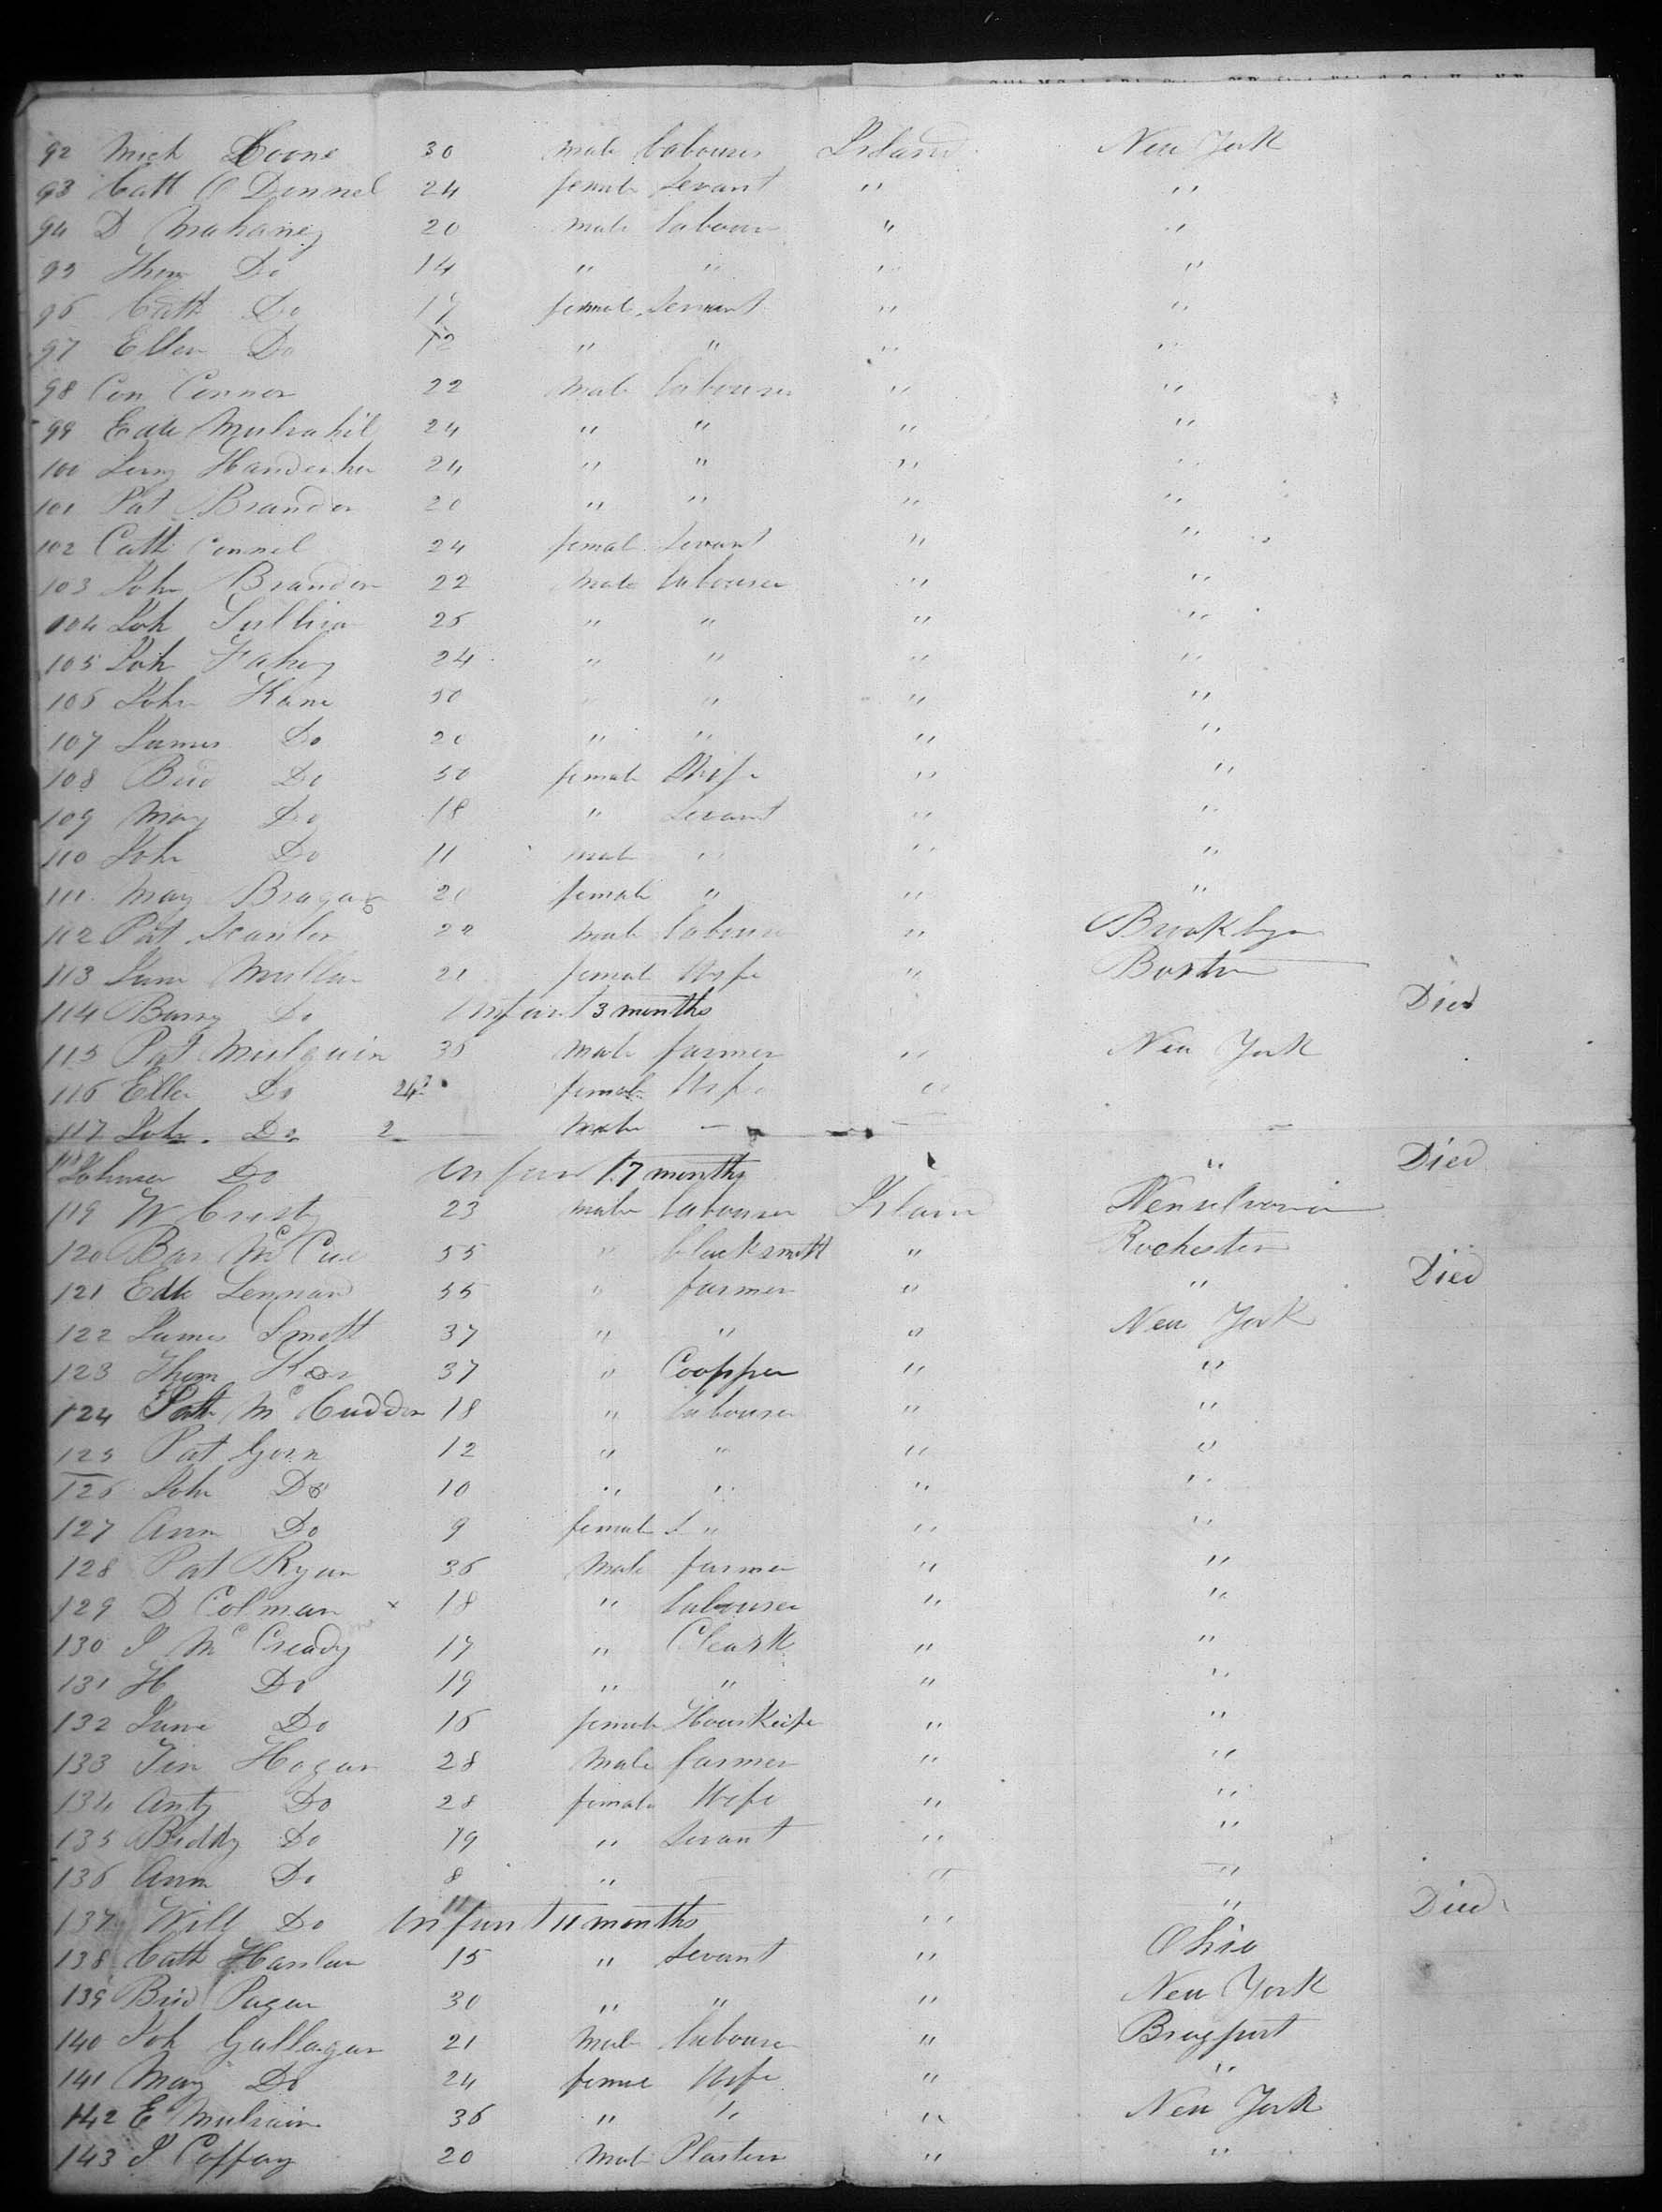 92 Mich Coone 30 male labourer Irland New York
93 Catt O Donnel 24 female Servant " "
94 D Mahaney 20 male labourer " "
95 Thom Do 14 " " " "
96 Cath Do 17 female Servant " "
97 Ellen Do 12 " " " "
98 Con Connor 22 male labourer " "
99 Edw 24 " " " "
100 24 " " " "
101 Pat Brandon 20 " " " "
102 Cath Connel 24 female Servant " "
103 John Brandon 22 male labourer " "
104 Joh Sullivan 25 " " " "
105 Joh Fahey 24 " " " "
106 John Kane 50 " " " "
107 James Do 20 " " " "
108 Brid Do 50 female Wife " "
109 Mary Do 18 " Servant " "
110 John Do 11 male " " "
111 Mary 20 female " " "
112 Pat Scanlon 22 male labourer " Brooklyn
113 Jane Mullan 21 female Wife " Boston
114 Barny Do Infant 3 months Died
115 Pat Mulquin 36 male farmer " New York
116 Ellen Do 24 female Wife "
117 John Do 2 male
118 Do Infant 7 months " Died
119 W Cristy 23 male labourer Irland Pensilvania
120 Bar McCue 55 " blacksmith " Rochester
121 Edw Lennard 55 " farmer " " Died
122 James Smith 37 " " " New York
123 Thom 37 " Coopper " "
124 Path McCudden 18 " labourer " "
125 Pat Gorn 12 " " " "
126 John Do 10 " " " "
127 Ann Do 9 female S " " "
128 Pat Ryan 36 male farmer " "
129 D Colman x 18 " labourer " "
130 J McCready 17 " Cleark " "
131 H Do 19 " " " "
132 Jane Do 16 female Houskeipe " "
133 Tim Hogan 28 male farmer " "
134 Anty Do 28 female Wife " "
135 Biddy Do 19 " Servant " "
136 Ann Do 8 " " "
137 Will Do Infant 11 months " " Died
138 Cath Hanlan 15 " Servant " Ohio
139 Brid Pagan 30 " " " New York
140 Joh Gallagan 21 male labourer " Bragport
141 Mary Do 24 female Wife " "
142 E Mulrain 36 " " " New York
143 J Coffay 20 male Plasterer " "